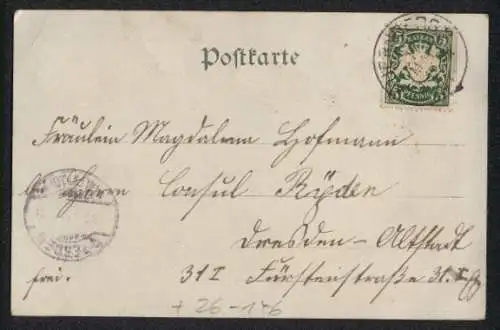 BAYERN
5 5
PFENNIG
Postkarte
Fräulein Magdalena Hofmann
Herrn Consul Ryden
Dresden-Altstadt
frei. 31 I Fürstenstraße 31. I
+ 26-146